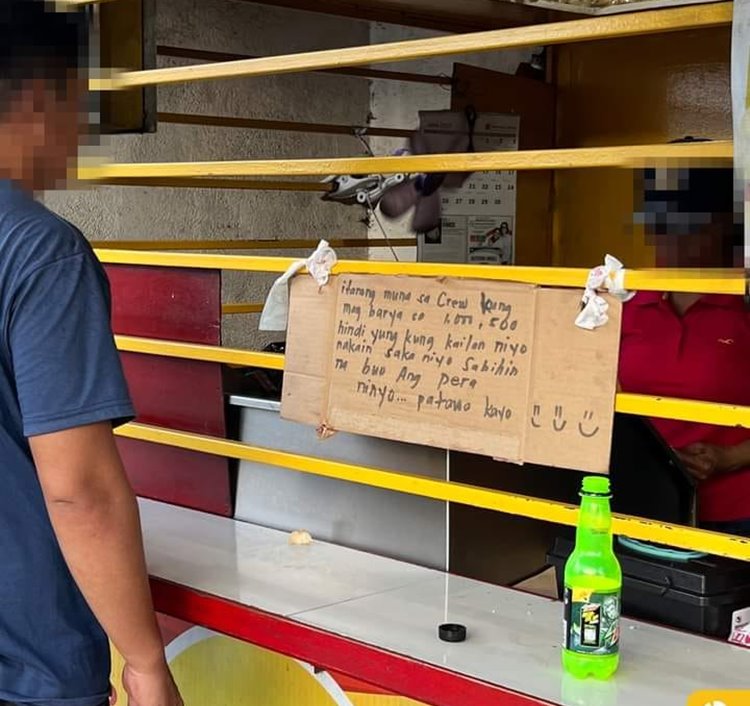 itanong muna sa Crew kung
may barya sa 1,000, 500
hindi yung kung kailan niyo
nakain saka niyo Sabihin
na buo Ang pera
ninyo... patawa kayo